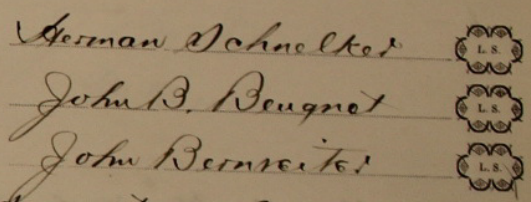 Herman Schnelker L. S.
John B. Beugnot L. S.
John Bernreiter L. S.